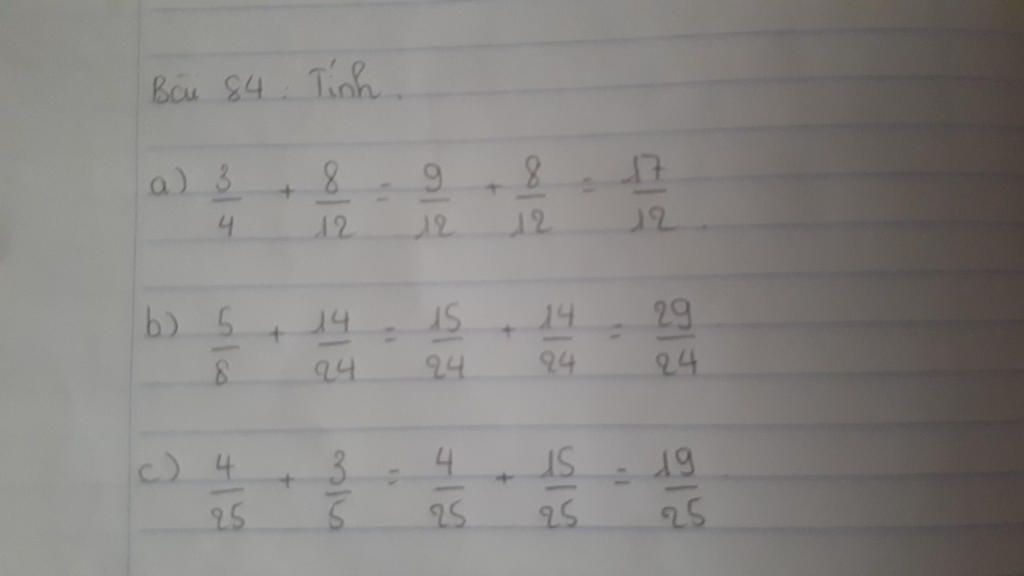 Bài 84 : Tính.
a) 3/4 + 8/12 = 9/12 + 8/12 = 17/12.
b) 5/8 + 14/24 = 15/24 + 14/24 = 29/24
c) 4/25 + 3/5 = 4/25 + 15/25 = 19/25